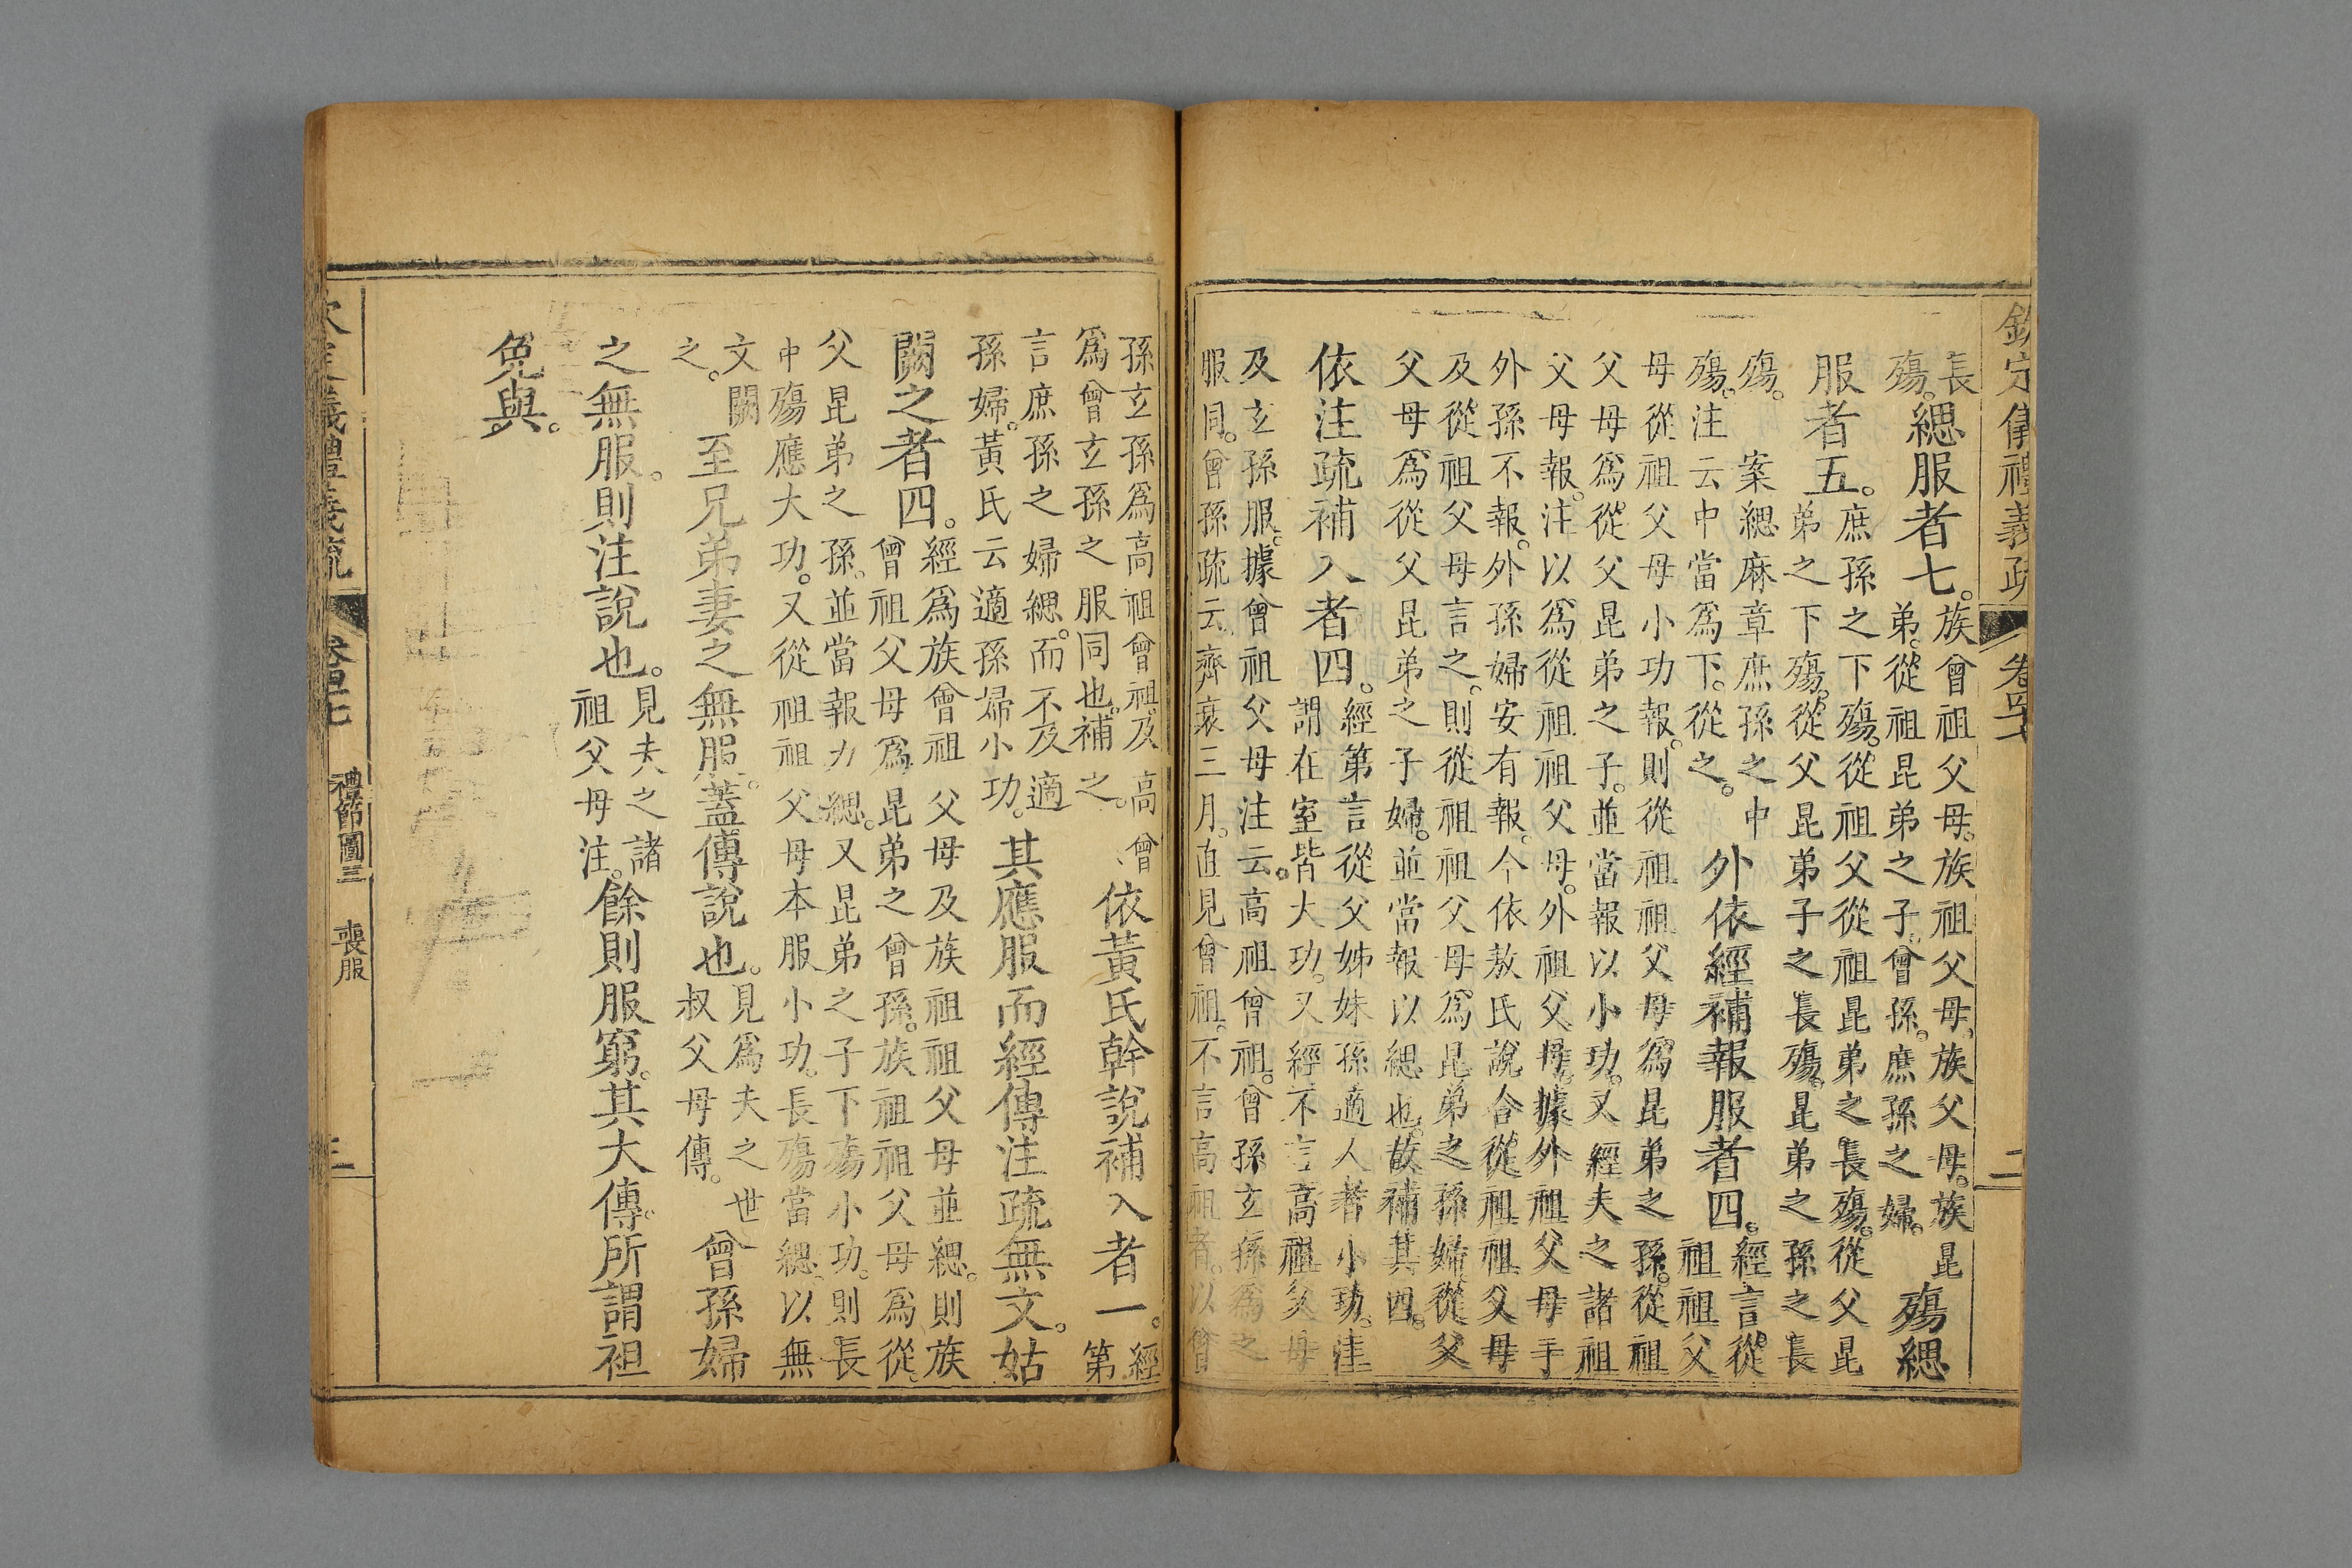 欽定儀禮義疏 卷四十七 二
長
殤緦服者七族曾祖父母族祖父母族父母族昆
弟從祖昆弟之子曾孫庶孫之婦殤緦
服者五庶孫之下殤從祖父從祖昆弟之長殤從父昆
弟之下殤從父昆弟子之長殤昆弟之孫之長
殤案緦麻章庶孫之中
殤注云中當爲下從之外依經補報服者四經言從
祖祖父
母從祖父母小功報則從祖祖父母爲昆弟之孫從祖
父母爲從父昆弟之子並當報以小功又經夫之諸祖
父母報注以爲從祖祖父母外祖父母據外祖父母于
外孫不報外孫婦安有報今依敖氏說合從祖祖父母
及從祖父母言之則從祖祖父母爲昆弟之孫婦從父
父母爲從父昆弟之子婦並當報以緦也故補其四
依注疏補入者四經第言從父姊妹孫適人者小功注
謂在室皆大功又經不言高祖父母
及玄孫服據曾祖父母注云高祖曾祖曾孫玄孫爲之
服同曾孫疏云齊衰三月直見曾祖不言高祖者以曾
孫玄孫爲高祖曾祖及高曾
爲曾玄孫之服同也補之依黃氏幹說補入者一經
第
言庶孫之婦緦而不及適
孫婦黃氏云適孫婦小功其應服而經傳注疏無文姑
闕之者四經爲族曾祖父母及族祖父母並緦則族
曾祖父母爲昆弟之曾孫族祖父母爲從
父昆弟之孫並當報力緦又昆弟之子下殤小功則長
中殤應大功又從祖祖父母本服小功長殤當緦以無
文闕
之至兄弟妻之無服蓋傳說也見爲夫之世
叔父母傳曾孫婦
之無服則注說也見夫之諸
祖父母注餘則服窮其大傳所謂袒
免與
儀禮義疏 卷四十七 禮節圖三 喪服 三